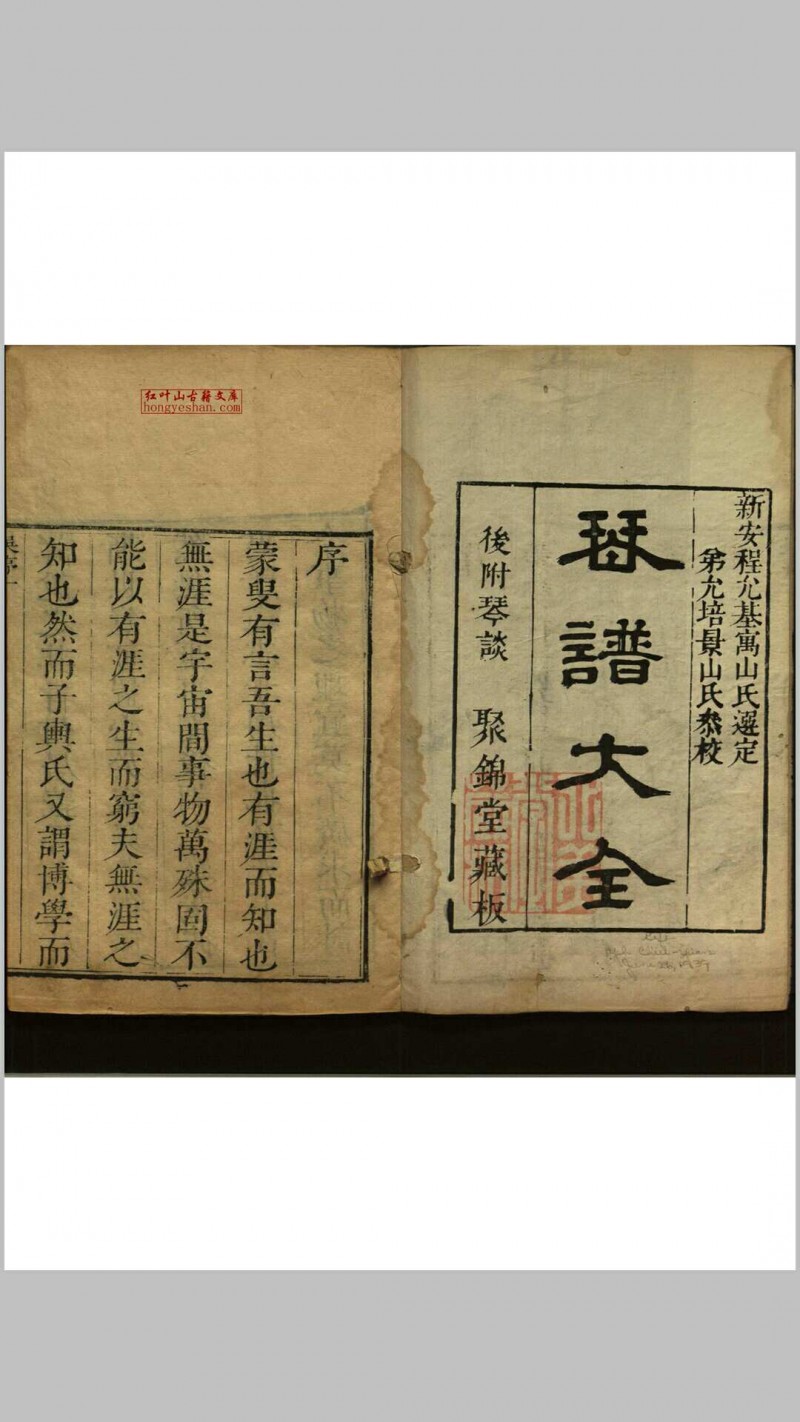 新安程允基寓山氏選定
弟允培景山氏叅校
琹譜大全
後附琴談　聚錦堂藏板
红叶山古籍文库
hongyeshan.com
序
蒙叟有言吾生也有涯而知也
無涯是宇宙間事物萬殊固不
能以有涯之生而窮夫無涯之
知也然而子輿氏又謂博學而